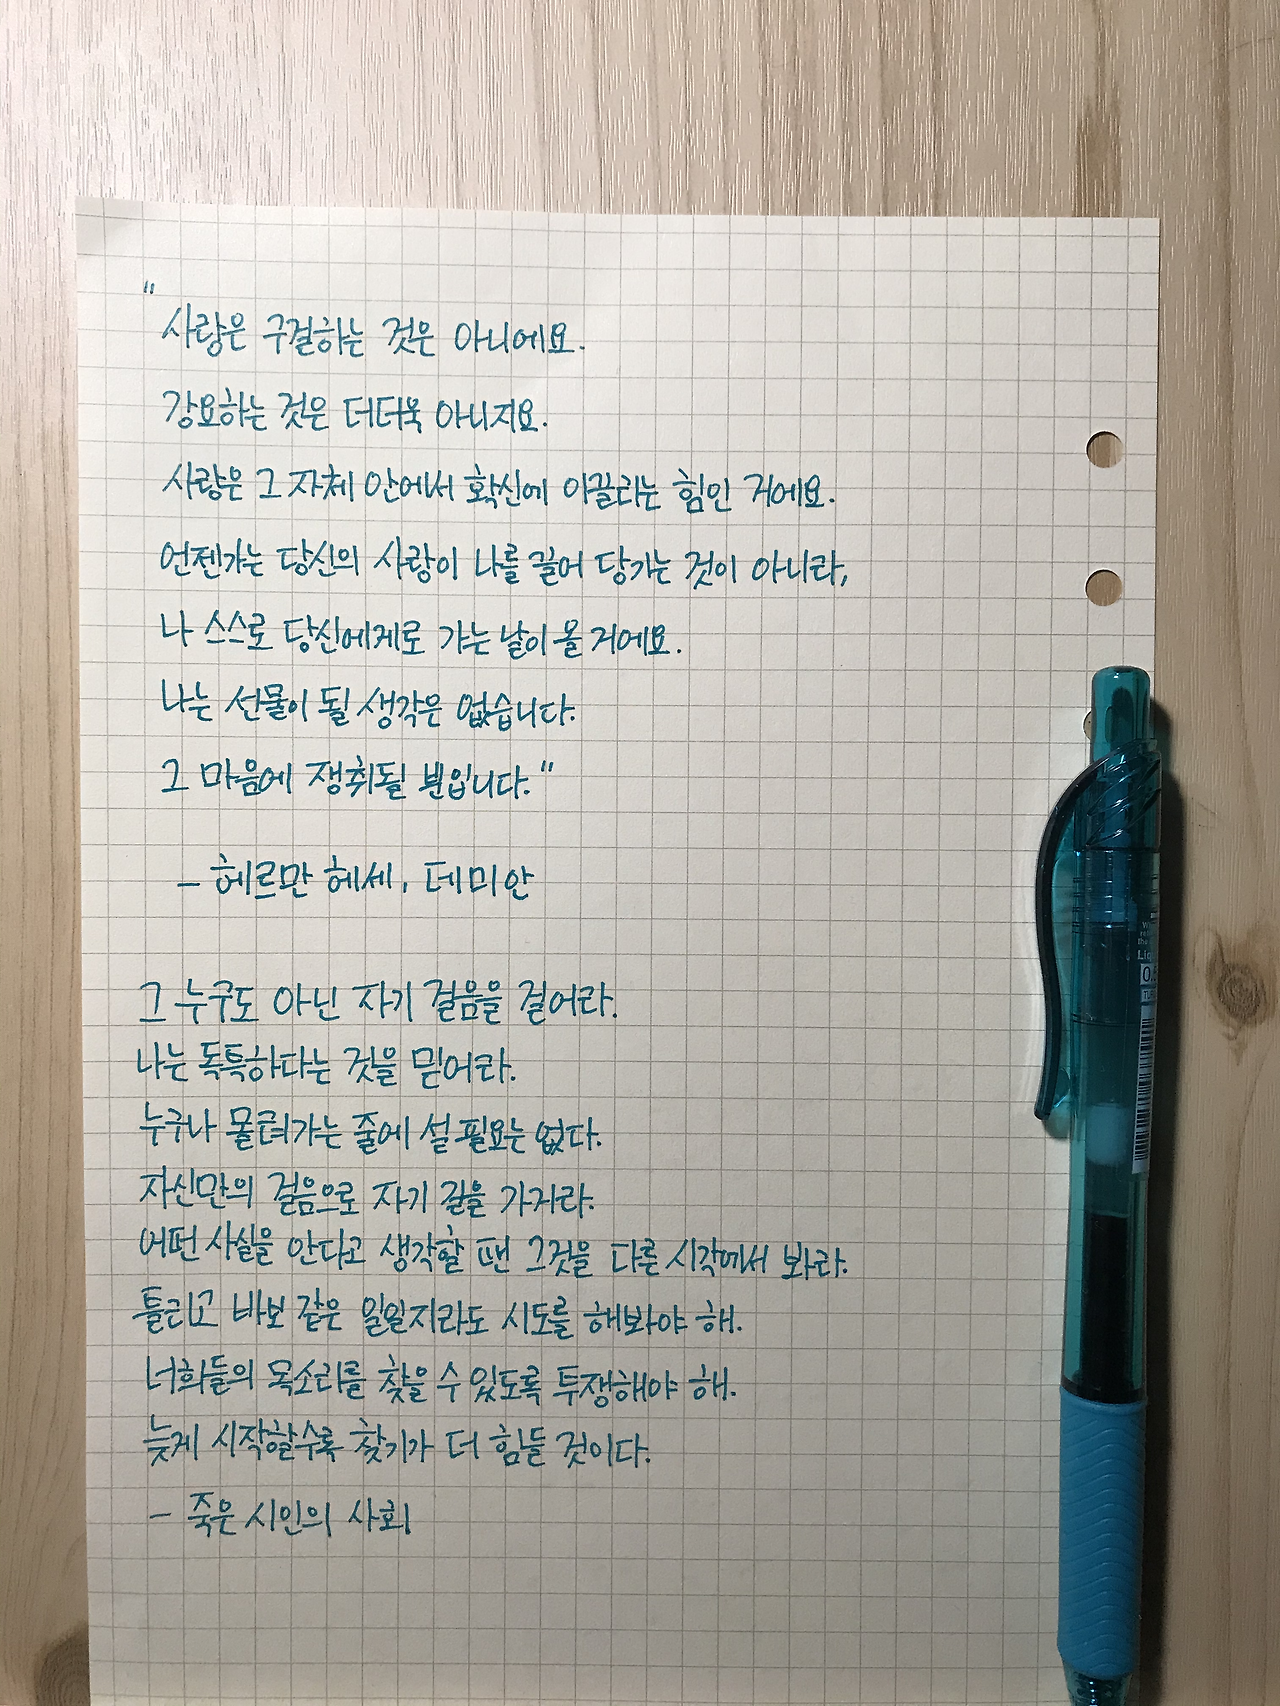 "
사랑은 구걸하는 것은 아니에요.
강요하는 것은 더더욱 아니지요.
사랑은 그 자체 안에서 확신에 이끌리는 힘인 거에요.
언젠가는 당신의 사랑이 나를 끌어 당기는 것이 아니라,
나 스스로 당신에게로 가는 날이 올 거에요.
나는 선물이 될 생각은 없습니다.
그 마음에 쟁취될 뿐입니다."
- 헤르만 헤세, 데미안
그 누구도 아닌 자기 걸음을 걸어라.
나는 독특하다는 것을 믿어라.
누구나 몰려가는 줄에 설 필요는 없다.
자신만의 걸음으로 자기 길을 가거라.
어떤 사실을 안다고 생각할 땐 그것을 다른 시각에서 봐라.
틀리고 바보 같은 일일지라도 시도를 해봐야 해.
너희들의 목소리를 찾을 수 있도록 투쟁해야 해.
늦게 시작할수록 찾기가 더 힘들 것이다.
- 죽은 시인의 사회
0.5